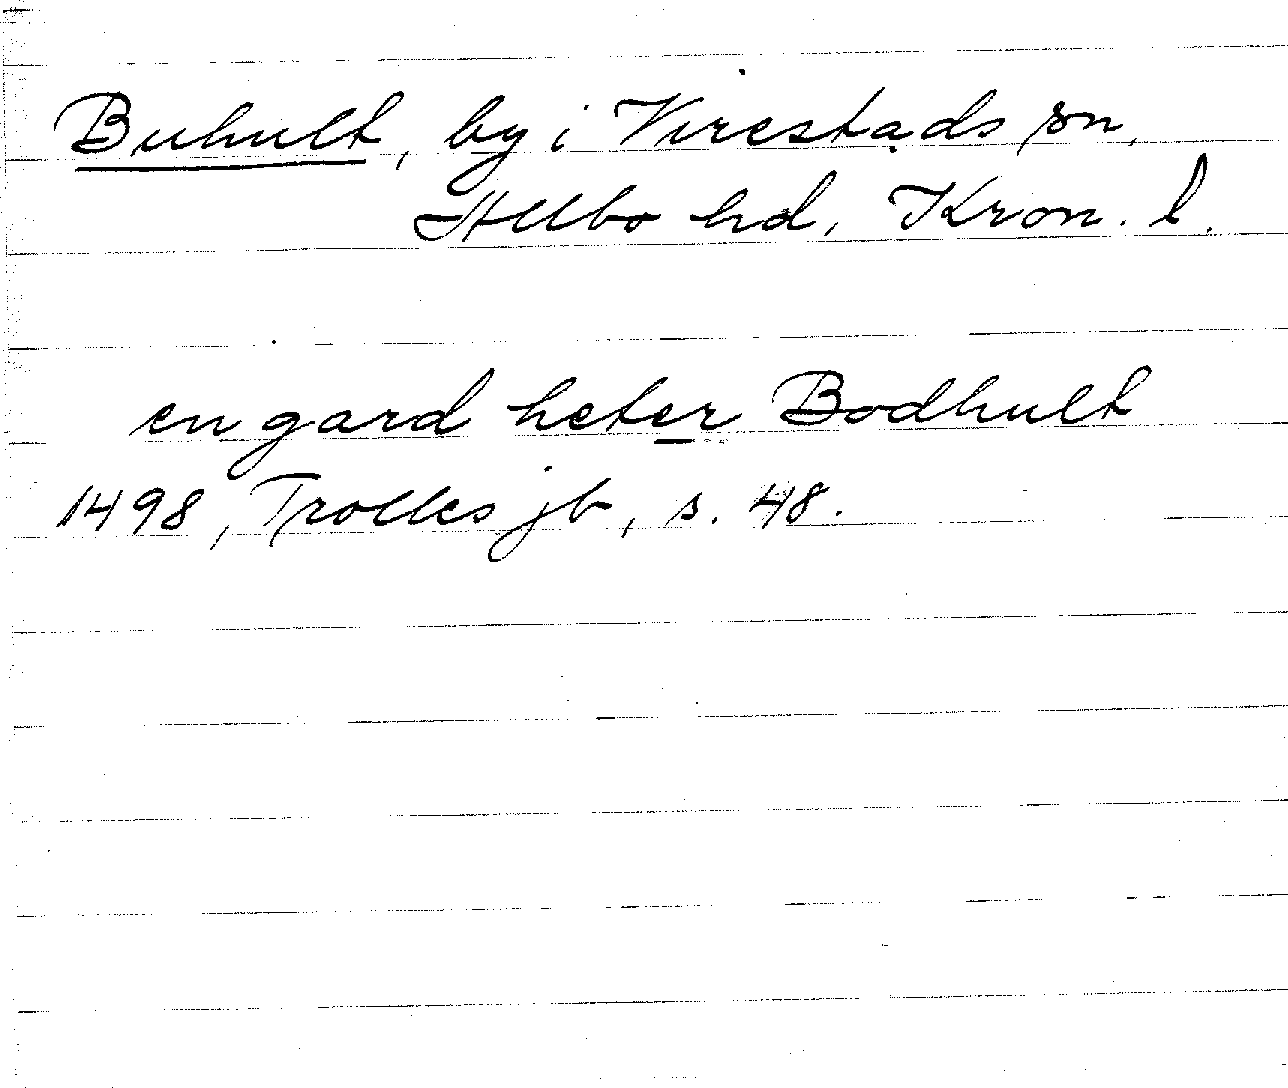 Buhult, by i Virestads sn,
Allbo hd, Kron. l.
en gard heter Bodhult
1498, Trolles jb, s. 48.